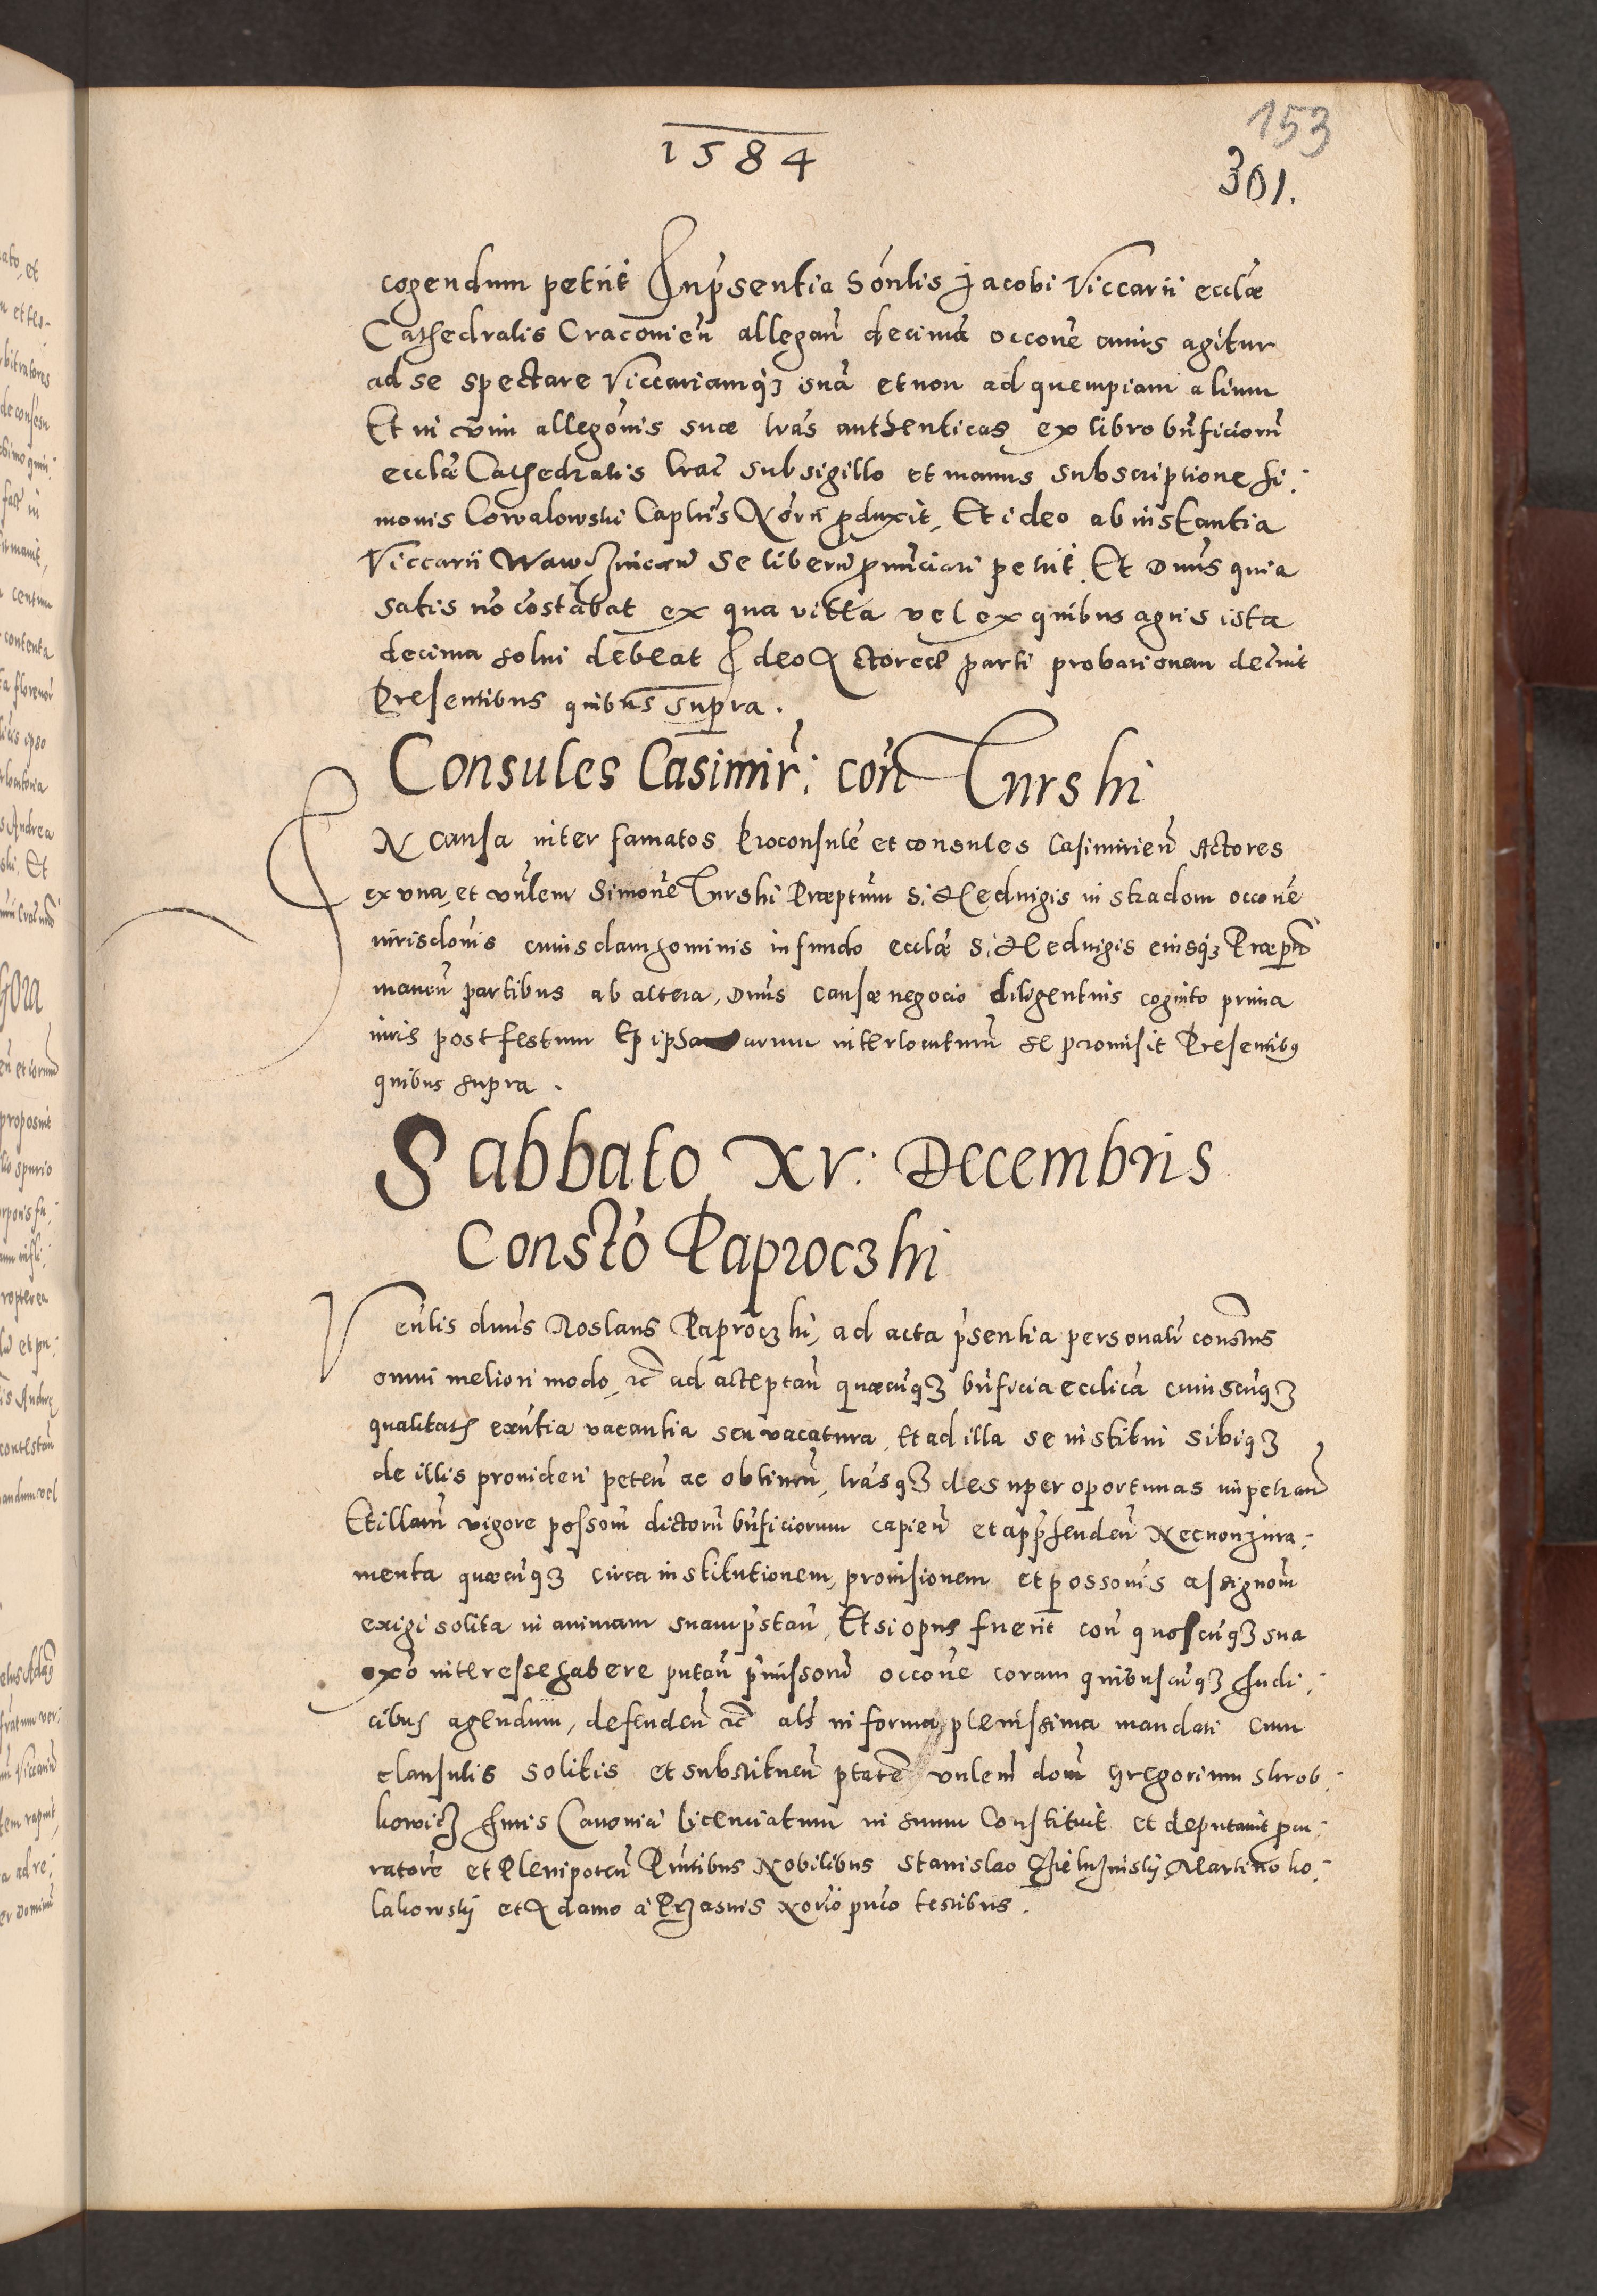 153
1584
301.
cogendum petiit Inp̃sentia Honlis Jacobi Viccarii ecclæ
Cathedralis Cracovien̄ allegan̄ decimā occōne cuius agitur
ad se spectare Viccariamq₃ suā et non ad quempiam alium
Et in vim allegōnis suæ l̄ras authenticas ex libro bn̄ficiorū
ecclæ Cathedralis Crac̄ sub sigillo et manus subscriptione Si:
monis Cowalowski Capl̄ris Nōrii ꝓduxit, Et ideo ab instantia
Viccarii se liberū ꝓnunciari petiit. Et Dnūs quia
satis nō cōstabat ex qua villa vel ex quibus agris ista
decima solvi debeat Ideo Actoreæ parti probationem decrevit
Presentibus quibus supra.
Consules Casimir̄: con̄ Turski
IN causa inter famatos Proconsulē et consules Casimirien̄ Actores
ex vna, et vn̄lem Simonē Turski Præptum S. Hedvigis in stradom occōne
iurisdōnis cuiusdam hominis in fundo ecclæ S. Hedvigis eiusq₃ Præp̄to
manen̄ partibus ab altera, Dnūs causæ negocio diligentius cognito prima
iuris post festum Epiphaniarum interlocuturū se promisit Presentibus
quibus supra.
Sabbato XV: Decembris
Constō Paproczki
Ven̄lis dnūs Roslaus Paproczki, ad acta p̄sentia personalr̄ constūs
omni meliori modo, etc̄ ad acceptan̄ quæcūq₃ bn̄ficia ecclīca cuiuscūq₃
qualitatis exn̄tia vacantia seu vacatura, Et ad illa se institui sibiq₃
de illis provideri peten̄ ac obtinen̄, l̄rasq₃ desuper oportunas impetran̄
Et illarū vigore possōm dictorū bn̄ficiorum capien̄ et app̄henden̄ Necnon iura:
menta quæcūq₃ circa institutionem, provisionem et possōnis assignōm
exigi solita in animam suam p̄stan̄, Et si opus fuerit con̄ quoscūq₃ sua
exō interesse habere putan̄ p̄missorū occōne coram quibuscūq₃ Iudi:
cibus agendum, defenden̄ etc̄ als̄ in forma plenissima mandati cum
clausulis solitis et substituen̄ ptātē vn̄lem dom̄ Gregorium Skrob:
kowicz Iuris Canonici licenciatum in suum Constituit et deputavit ꝓcu:
ratorē et Plenipoten̄ Pn̄tibus Nobilibus Stanislao Martino ko:
lakowskij et Adamo a Przasnis Nōrio pub̄co testibus.